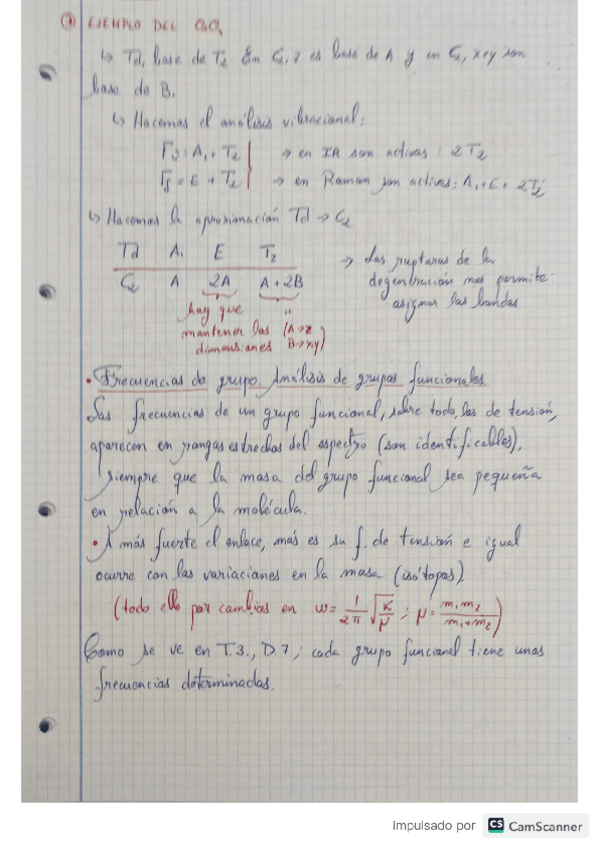 EJEMPLO DEL
↳ Td, base de T2 En C2, z es base de A y en C2, x+y son
base de B.
↳ Hacemos el análisis vibracional:
Γ = A1 + T2 → en IR son activas: 2T2
Γ = E + T2 → en Raman son activas: A1+E+2T2
↳ Hacemos la aproximación Td → C2
Td A1 E T2
C2 A 2A A+2B
→ Las rupturas de la
degeneración nos permite
asignar las bandas.
hay que "
mantener las (A→z
dimensiones B→x,y)
• Frecuencias de grupo. Análisis de grupos funcionales.
Las frecuencias de un grupo funcional, sobre todo, las de tensión,
aparecen en rangos estrechos del espectro (son identificables),
siempre que la masa del grupo funcional sea pequeña
en relación a la molécula.
• A más fuerte el enlace, más es su f. de tensión e igual
ocurre con las variaciones en la masa (isótopos).
(todo ello por cambios en ω = 1/2π √K/μ ; μ = m1m2/m1+m2)
Como se ve en T.3., D.7, cada grupo funcional tiene unas
frecuencias determinadas.
Impulsado por CS CamScanner